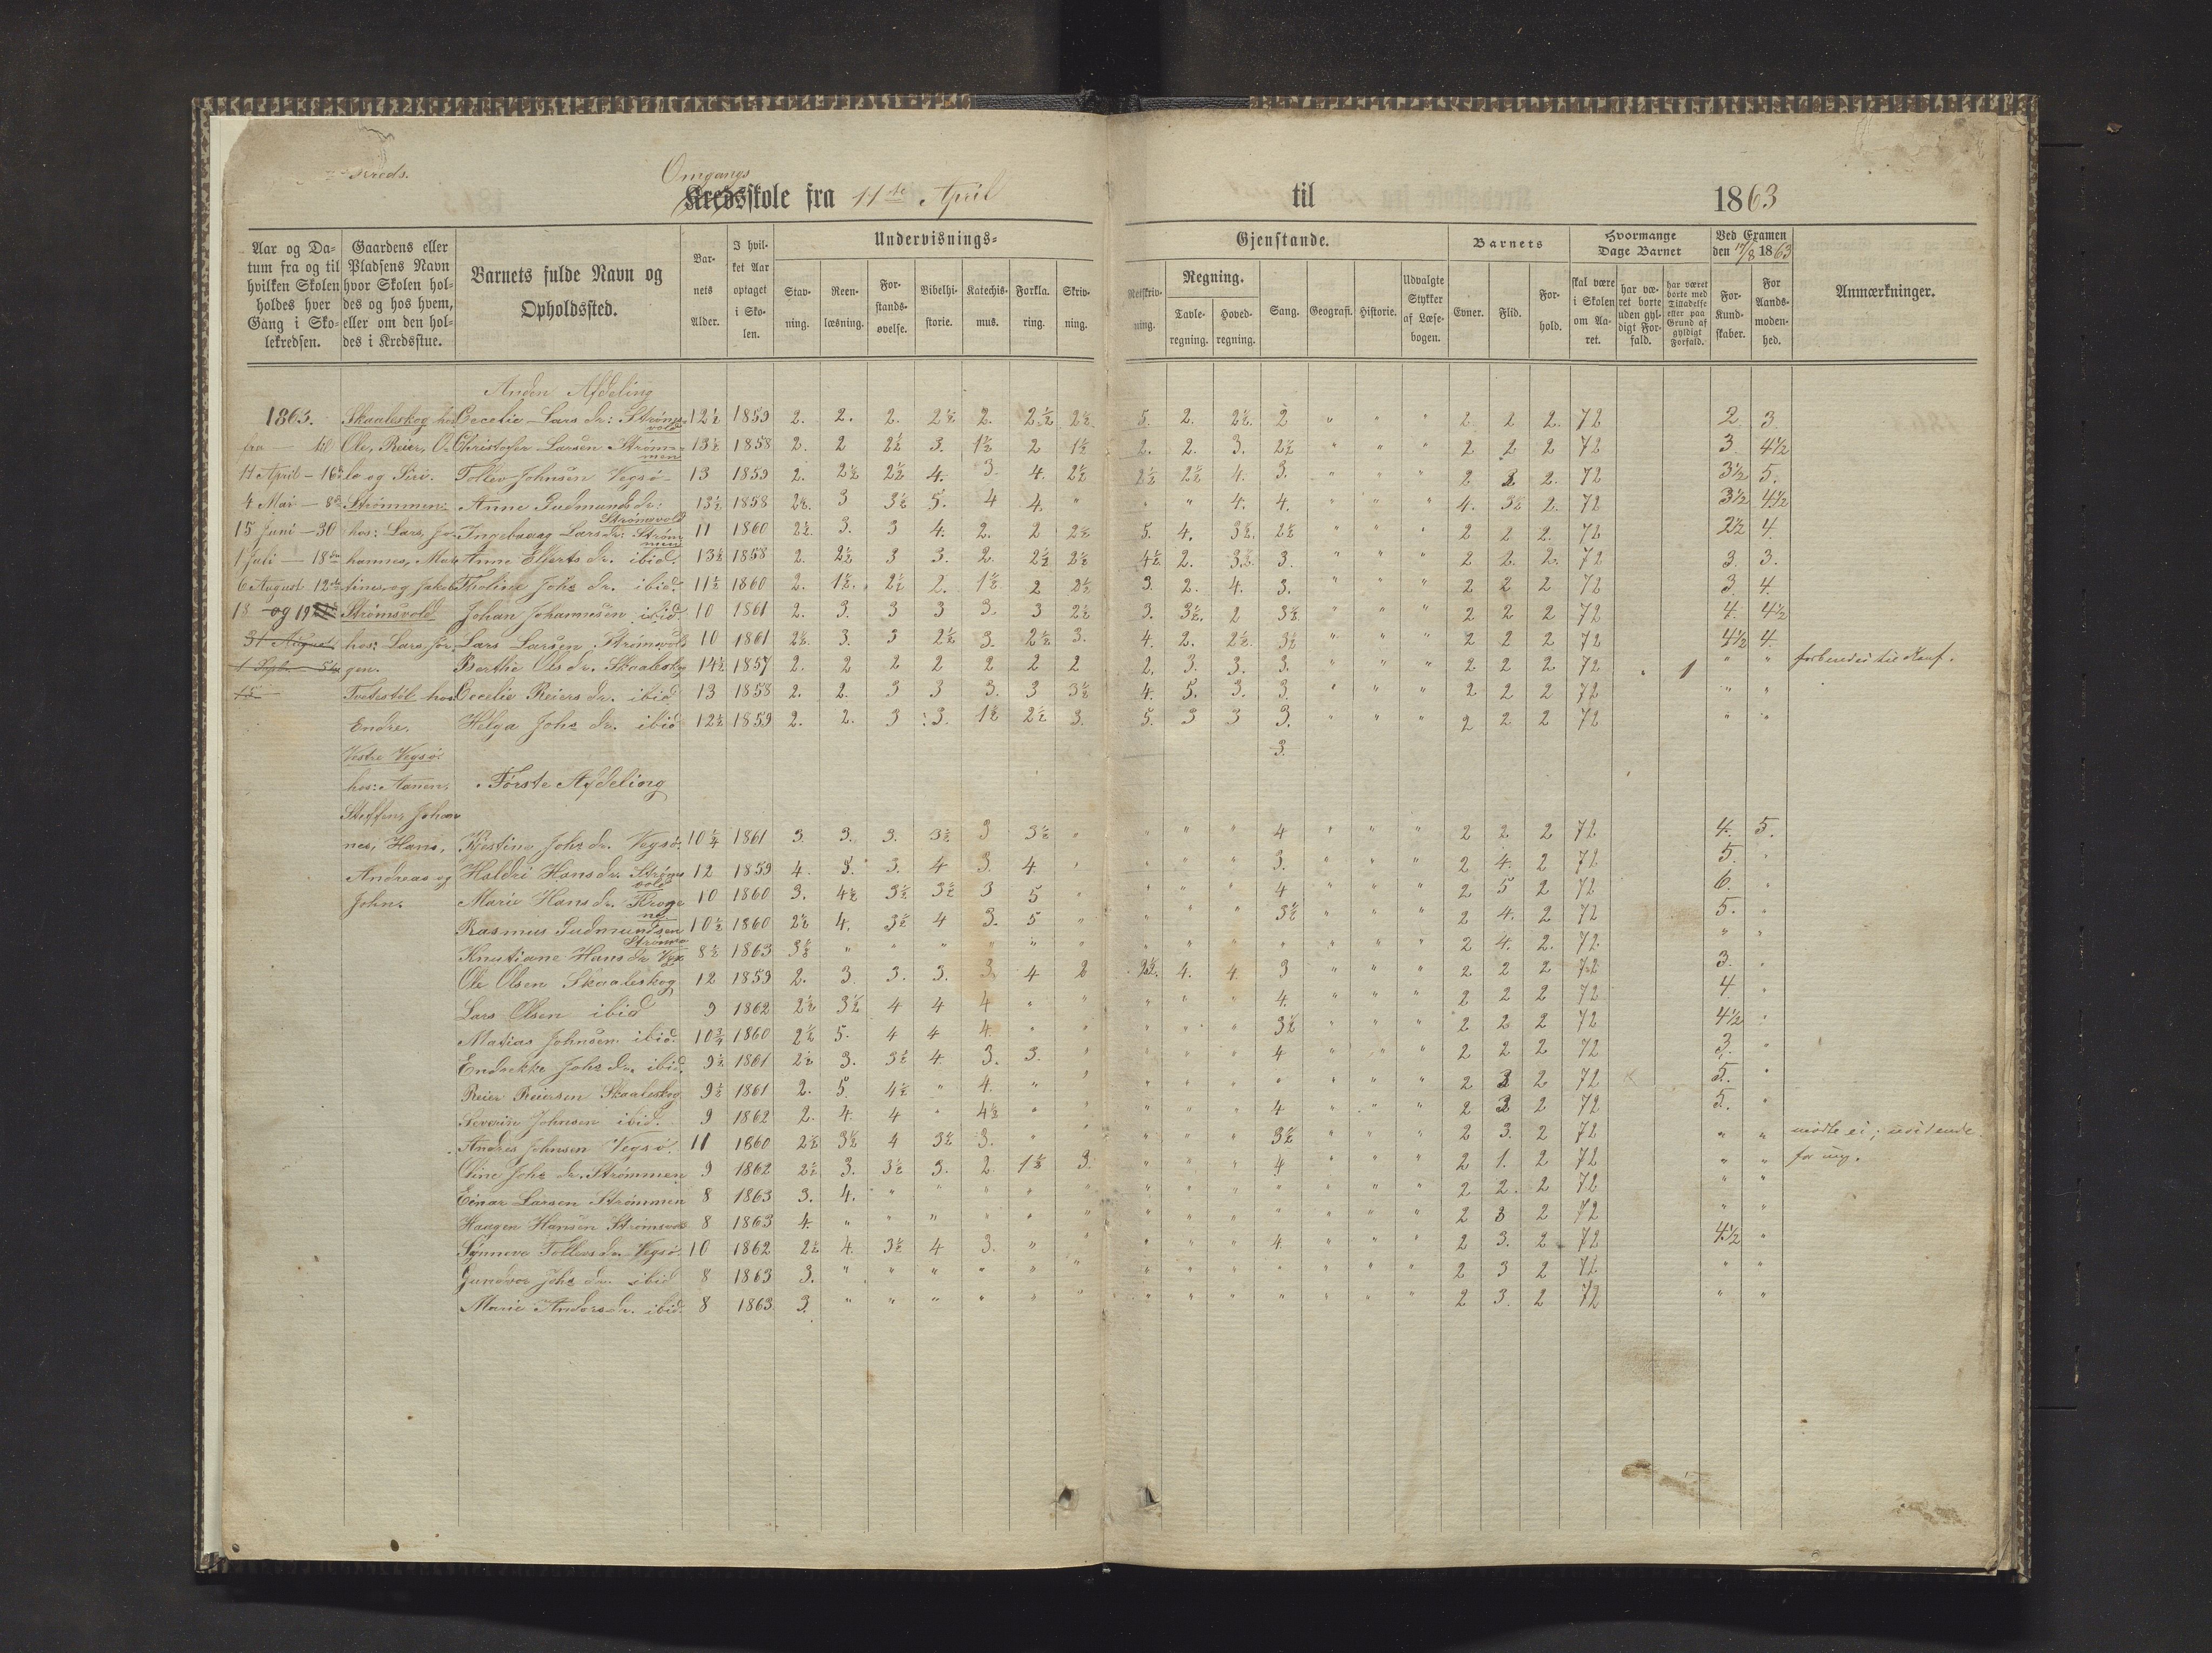 Kreds.
Omgangs
Kredsskole fra 11te April til 1863
Aar og Datum fra og til hvilken Skolen holdes hver Gang i Skolekredsen.
Gaardens eller Pladsens Navn hvor Skolen holdes og hos hvem, eller om den holdes i Kredsstue.
Barnets fulde Navn og Opholdssted.
Barnets Alder.
I hvilket Aar optaget i Skolen.
Undervisnings-
Stavning. Reenlæsning. Forstandsøvelse. Bibelhistorie. Katechismus. Forklaring. Skrivning.
Gjenstande.
Retskrivning. Regning. Tavleregning. Hovedregning. Sang. Geografi. Historie. Udvalgte Stykker af Læsebogen.
Barnets
Evner. Flid. Forhold.
Hvormange Dage Barnet
skal være i Skolen om Aaret. har været borte uden gyldigt Forfald. har været borte med Tilladelse eller paa Grund af gyldigt Forfald.
Ved Examen den 17/8 1863
For Kundskaber. For Aandsmodenhed.
Anmærkninger.
Anden Afdeling
1863. Skaaleskog hos Cecelie Lars dr: Strømsvold 12½ 1859 2. 2. 2. 2½ 2. 2½ 2½ 5. 2. 2½ 2 " " " 2 2 2. 72 2 3.
fra til Ole, Reier, O- Christofer Larsen Strømmen 13½ 1858 2. 2 2½ 3. 1½ 2 1½ 2. 2. 3. 2½ " " " 2 2 2 72 3. 4½
11 April - 16 la og Siri. Tollev Johnsen Vegsø 13 1859 2. 2½ 2½ 4. 3. 4. 2½ 2½ 2½ 4. 3. " " " 2 2 2. 72 3½ 5.
4 Mai - 8 Strømmen: Anne Gudmunds dr: Strømsvold 13½ 1858 2½ 3 3½ 5. 4 4. " " " 4. 4. " " " 4. 3½ 2. 72 3½ 4½
15 Juni - 30 hos: Lars, Jo- Ingebaarg Lars dr: Strømmen 11 1860 2½ 3. 3 4. 2. 2 2½ 5. 4. 3½ 2½ " " " 2 2 2. 72 2½ 4.
1 Juli - 18 hannes, Mar- Anne Elferts dr. ibid. 13½ 1858 2. 2½ 3 3. 2. 2½ 2½ 4½ 2. 3½ 3. " " " 2 2. 2. 72 3. 3.
6 August 12 tines, og Jakob Tholine Johs dr. ibid. 11½ 1860 2. 1½ 2½ 2. 1½ 2 2½ 3. 2. 4. 3. " " " 2 2 2 72 3. 4.
18 og 19 Strømsvold Johan Johannesen ibid. 10 1861 2. 3. 3 3 3. 3 2½ 3. 3½ 2 3½ " " " 2 2 2 72 4. 4½
31 August hos: Lars, Jør- Lars Larsen Strømsvold 10 1861 2½ 3. 3 2½ 3. 2½ 3. 4. 2. 2½ 3½ " " " 2 2 2 72 4½ 4.
gen. Berthe Ols dr. Skaaleskog 14½ 1857 2. 2 2 2 2 2 2 2. 3. 3. 3. " " " 2 2 2 72 1 " "
15 Tvetestil hos Cecelie Reiers dr. ibid 13 1858 2. 2. 3 3 3. 3 3½ 4. 5. 3. 3. " " " 2 2 2 72 " "
Endre. Helga Johs dr. ibid 12½ 1859 2. 2. 3 3. 1½ 2½ 3. 5. 3 3 3. " " " 2 2 2 72 " "
Vestre Vegsø 3.
hos: Aanen, Første Afdeling
Steffen, Johan
nes, Hans, Kristine Johs dr. Vegsø. 10¼ 1861 3. 3. 3. 3½ 3 3½ " " " " 4 " " " 2 2 2 72 4. 5.
Andreas og Haldri Hans dr. Strømsvold 12 1859 4. 3. 3. 4 3. 4. " " " " 3. " " " 2 4. 2 72 5. "
John. Marie Hans dr. 10 1860 3. 4½ 3½ 3½ 3 5 " " " " 4 " " " 2 5 2 72 6. "
Rasmus Gudmundsen 10½ 1860 2½ 4. 3½ 4 3. 5 " " " " 3½ " " " 2 4. 2 72 5. "
Kristiane Hans dr 8½ 1863 3½ " " " " " " " " " " " " " 2 4. 2. 72 " "
Ole Olsen Skaaleskog 12 1859 2. 3. 3. 3. 3. 4 2 2½ 4. 4. 3 " " " 2 2 2 72 3. "
Lars Olsen ibid 9 1862 2½ 3½ 4 4 4 " " " " " 4. " " " 2 2 2 72 4 "
Matias Johnsen ibid. 10¾ 1860 2½ 5. 4 4 4. " " " " " 3½ " " " 2 2 2 72 4½ "
Endrekke Johs dr. ibid. 9½ 1861 2½ 3. 3½ 4. 3. 3. " " " " 4 " " " 2 2 2 72 3. "
Reier Reiersen Skaaleskog 9½ 1861 2. 5. 4½ " 4. " " " " " " " " " 2 2 2 72 5. "
Severin Johnsen ibid. 9 1862 2. 4. 4 " 4½ " " " " " 4 " " " 2 2 2 72 5. "
Andres Johnsen Vegsø. 11 1860 2½ 3½ 4 3½ 3. " " " " " 3½ " " " 2 3. 2 72 " " mødte ei; uvidende
Stine Johs dr. Strømmen 9 1862 2½ 3. 3½ 3. 2 1½ 3. " " " 4 " " " 2 1. 2 72 " " for mig.
Einar Larsen Strømmen 8 1863 3. 4. " " " " " " " " " " " " 2 2. 2 72 " "
Haagen Hansen Strømsvold 8 1863 4. " " " " " " " " " " " " " 2 3 2 72 " "
Synneva Tollevs dr. Vegsø. 10 1862 2½ 4. 3½ 4 3. " " " " " 4. " " " 2 3. 2 72 4½ "
Gundvor Johs dr. ibid 8 1863 3. " " " " " " " " " " " " " 2 3 2 72 " "
Marie Anders dr. ibid. 8 1863 3. " " " " " " " " " " " " " 2 3. 2 72 " "